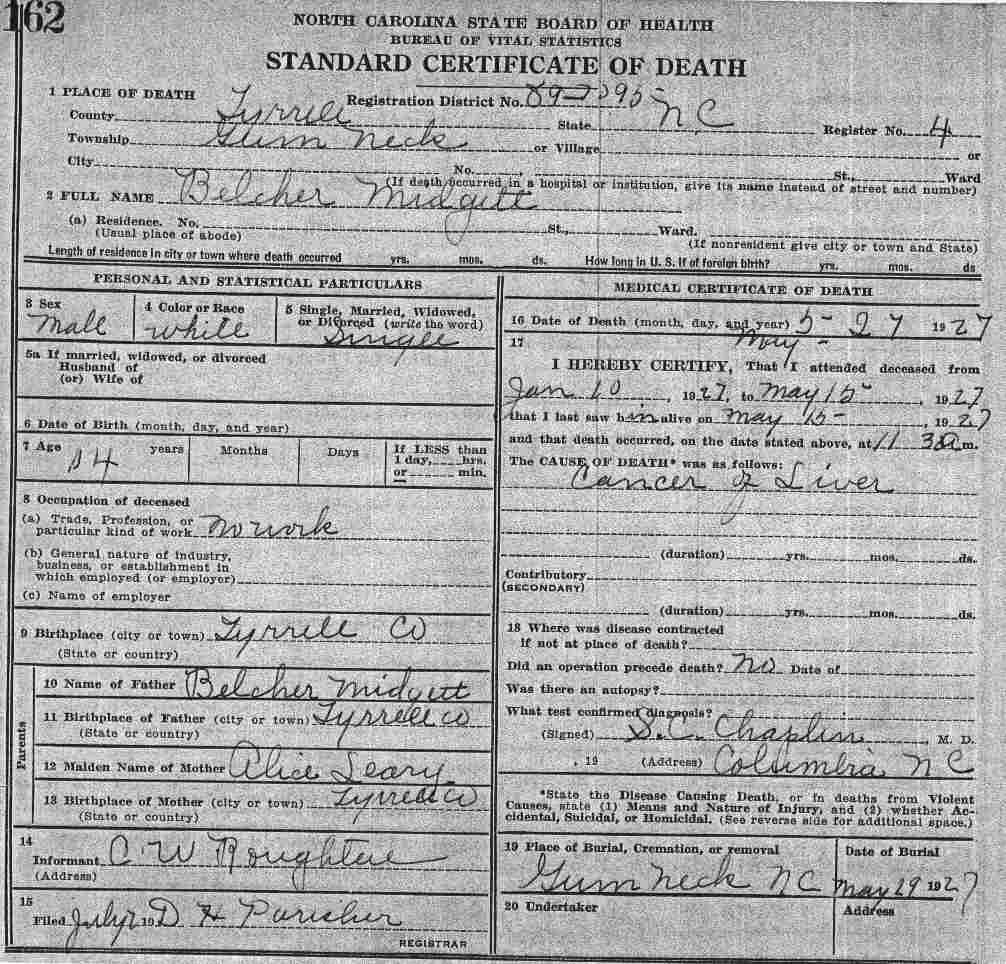 162
NORTH CAROLINA STATE BOARD OF HEALTH
BUREAU OF VITAL STATISTICS
STANDARD CERTIFICATE OF DEATH
1 PLACE OF DEATH Registration District No. 89-7395-
County Tyrrell State N C Register No. 4
Township Gum Neck or Village or
City No. , St., Ward
(If death occurred in a hospital or institution, give its name instead of street and number)
2 FULL NAME Belcher Midgett
(a) Residence. No. St., Ward.
(Usual place of abode) (If nonresident give city or town and State)
Length of residence in city or town where death occurred yrs. mos. ds. How long in U. S. if of foreign birth? yrs. mos. ds
PERSONAL AND STATISTICAL PARTICULARS
3 Sex 4 Color or Race 5 Single, Married, Widowed,
or Divorced (write the word)
Male White Single
5a If married, widowed, or divorced
Husband of
(or) Wife of
6 Date of Birth (month, day, and year)
7 Age 14 years Months Days If LESS than
1 day, hrs.
or min.
8 Occupation of deceased
(a) Trade, Profession, or
particular kind of work No work
(b) General nature of industry,
business, or establishment in
which employed (or employer)
(c) Name of employer
9 Birthplace (city or town) Tyrrell Co
(State or country)
Parents
10 Name of Father Belcher Midgett
11 Birthplace of Father (city or town) Tyrrell Co
(State or country)
12 Maiden Name of Mother Alice Leary
13 Birthplace of Mother (city or town) Tyrrell Co
(State or country)
14
Informant C. W
(Address)
15
Filed July 19 D H Parisher
REGISTRAR
MEDICAL CERTIFICATE OF DEATH
16 Date of Death (month, day, and year) 5- 27 1927
May -
17
I HEREBY CERTIFY, That I attended deceased from
Jan 10 , 1927, to May 15- , 1927
that I last saw him alive on May 15- , 1927
and that death occurred, on the date stated above, at 11 30a m.
The CAUSE OF DEATH* was as follows:
Cancer of Liver
(duration) yrs. mos. ds.
Contributory
(SECONDARY)
(duration) yrs. mos. ds.
18 Where was disease contracted
if not at place of death?
Did an operation precede death? No Date of
Was there an autopsy?
What test confirmed diagnosis?
(Signed) S. C. Chaplin , M. D.
, 19 (Address) Columbia N C
*State the Disease Causing Death, or in deaths from Violent
Causes, state (1) Means and Nature of Injury, and (2) whether Ac-
cidental, Suicidal, or Homicidal. (See reverse side for additional space.)
19 Place of Burial, Cremation, or removal Date of Burial
Gum Neck NC May 29 1927
20 Undertaker Address